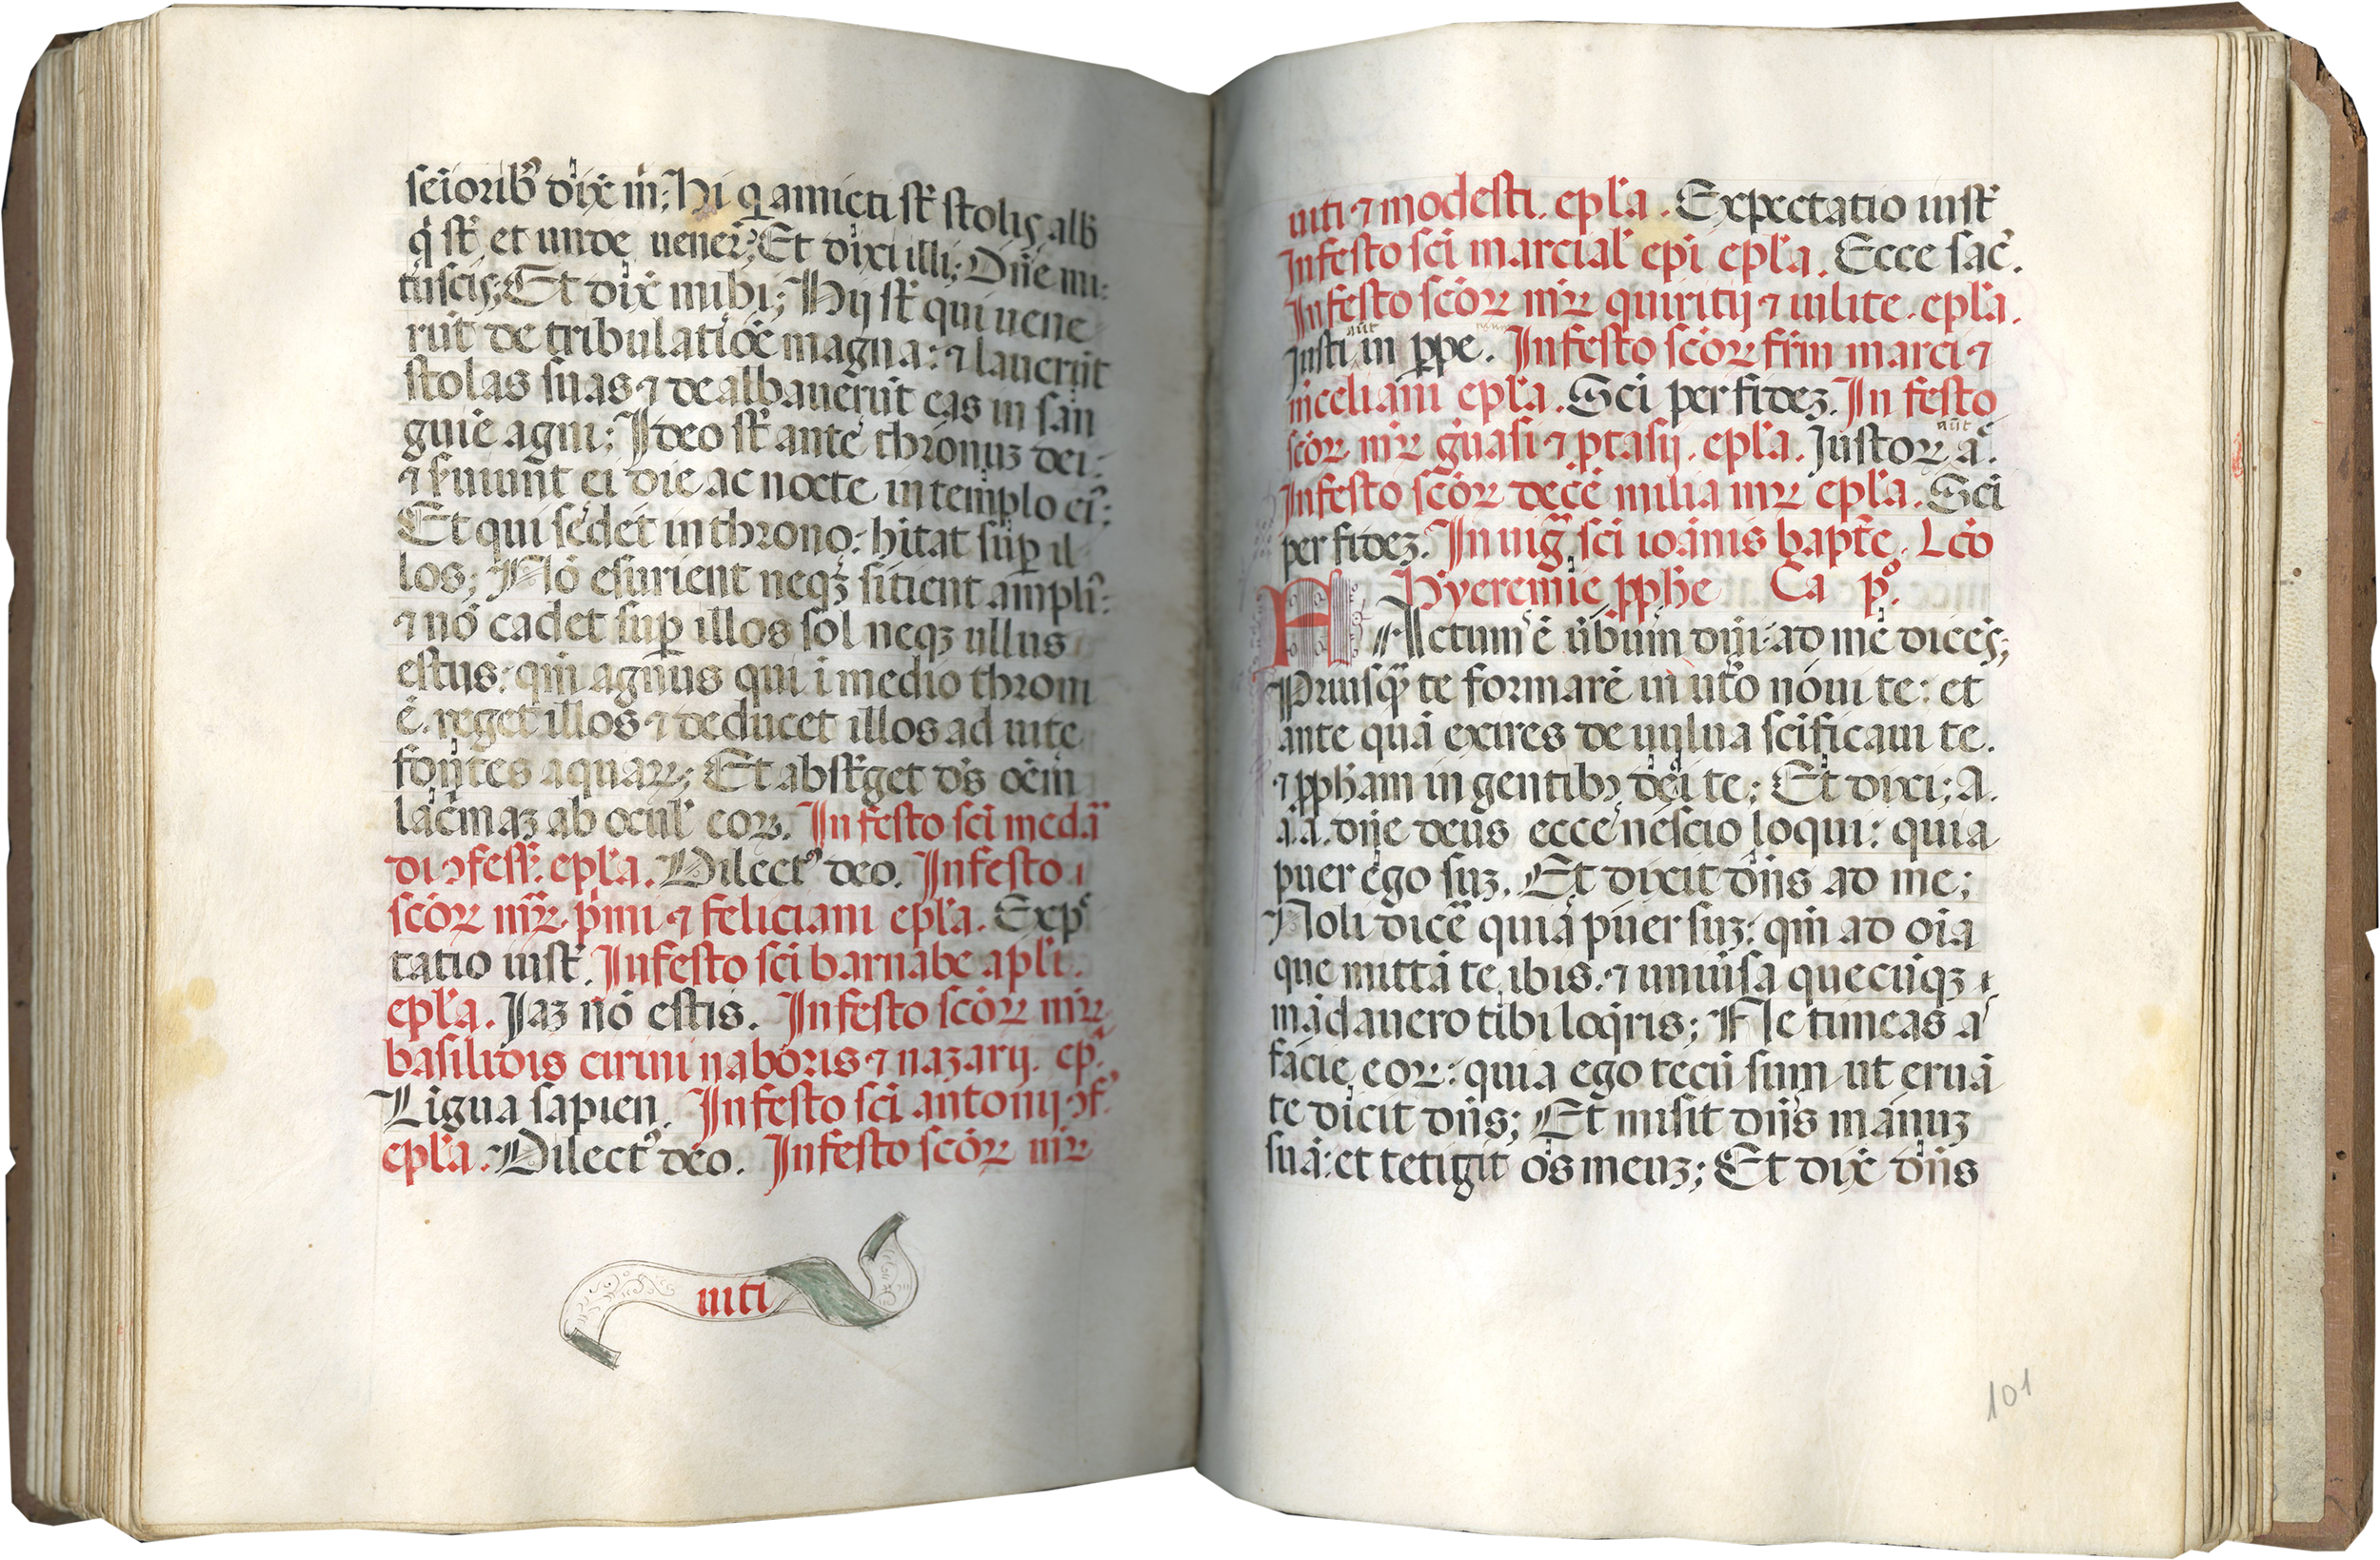 seioribꝰ dix̄ m̄; Hi q̇ amicti st̄ stolis alb̄
q̇ st̄ et unde uener̄? Et dixi illi; Dn̄e mi:
tu scis; Et dix̄ mihi; Hij st̄ qui uene
rūt de tribulatiōe magna: ⁊ lauerūt
stolas suas ⁊ dealbauerūt eas in san
guiē agni; Ideo st̄ ante thronuꝫ dei:
⁊ s̄uiunt ei die ac nocte in templo eiꝰ:
Et qui sedet in throno: hitat sup̄ il
los; Nō esurient neqꝫ sitient ampliꝰ:
⁊ nō cadet sup̄ illos sol neqꝫ ullus
estus: qm̄ agnus qui i medio throni
ē. reget illos ⁊ deducet illos ad uite
fontes aquaꝝ; Et abst̄get ds̄ oēm
lac̄maꝫ ab ocul̄ eoꝝ. In festo sci medā
di ↄfess̄. epl̄a. Dilectꝰ deo. In festo
scōꝝ mr̄ꝝ p̄mi ⁊ feliciani epl̄a. Exp̄
tatio iust̄. In festo sci barnabe apl̄i.
epl̄a. Iaꝫ nō estis. In festo scōꝝ mr̄ꝝ
basilidis cirini naboris ⁊ nazarij. ep̄.
Ligua sapien. In festo sci antonij ↄf.
epl̄a. Dilectꝰ deo. In festo scōꝝ mr̄ꝝ
uiti
uiti ⁊ modesti. epl̄a. Expectatio iust̄
In festo sci marcial̄ epi epl̄a. Ecce sac̄.
In festo scōꝝ mr̄ꝝ quiritij ⁊ iulite. epl̄a.
aūt
Iusti in ꝑpe. In festo scōꝝ fr̄m marci ⁊
m̄celiani epl̄a. Sci per fideꝫ. In festo
aūt
scōꝝ mr̄ꝝ g̊uasi ⁊ ꝓtasij. epl̄a. Iustoꝝ a.
In festo scōꝝ decē milia mr̄ꝝ epl̄a. Sci
per fideꝫ. In uig̃ sci ioānis bapt̄e. Lcō
Hyeremie ꝓph̄e Ca p̊.
FActum ē ūbum dn̄i ad me dicēs;
Priusq̃ te formarē in ut̄o nōui te: et
ante quā exires de uulua scīficaui te.
⁊ ꝓph̄am in gentibꝫ dedi te; Et dixi; A.
a.a. dn̄e deus ecce nescio loqui: quia
puer ego suꝫ. Et dixit dn̄s ad me;
Noli dicē quia puer suꝫ: qm̄ ad oīa
que mittā te ibis. ⁊ uniūsa quecūqꝫ
mādauero tibi loq̄ris; Ne timeas a
facie eoꝝ: quia ego tecū sum ut eruā
te dicit dn̄s; Et misit dn̄s manuꝫ
suā: et tetigit os meuꝫ; Et dix̄ dn̄s
101